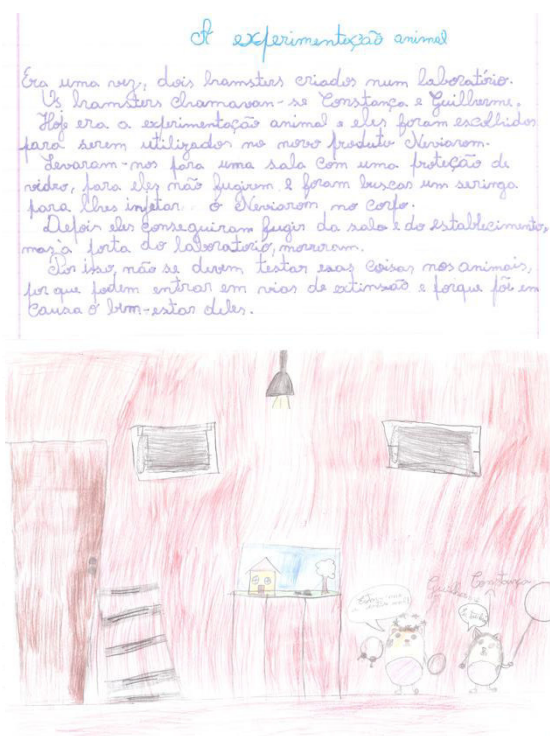 A experimentação animal
Era uma vez, dois hamsters criados num laboratório.
Os hamsters chamavan-se Constança e Guilherme.
Hoje era a experimentação animal e eles foram escolhidos
para serem utilizados no novo produto Neviarom.
Levaram-nos para uma sala com uma proteção de
vidro, para eles não fugirem e foram buscar um seringa
para lhes injetar o Neviarom no corpo.
Depois eles conseguiram fugir da sala e do establecimento,
mas à porta do laboratório, morreram.
Por isso, não se devem testar esas coisas nos animais,
por que podem entrar em vias de extinsão e porque põi em
causa o bem-estar deles.
Constança